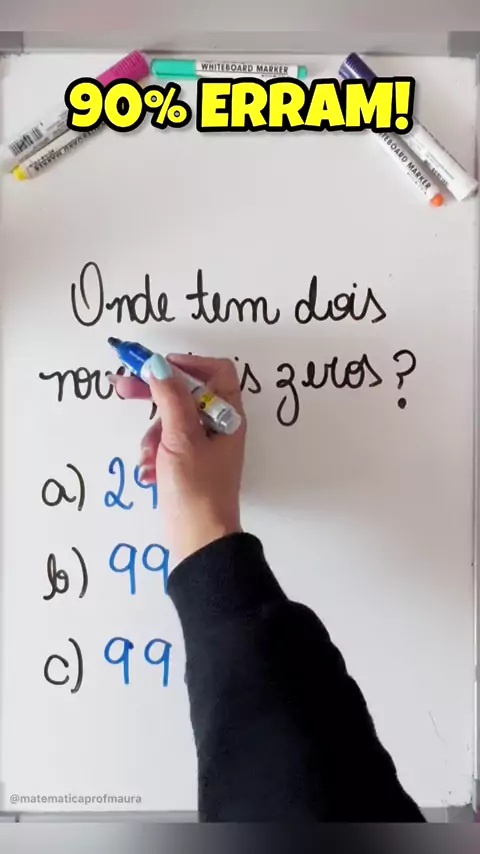 WHITEBOARD MARKER
90% ERRAM!
Onde tem dois
zeros?
a) 29
b) 99
c) 99
@matematicaprofmaura